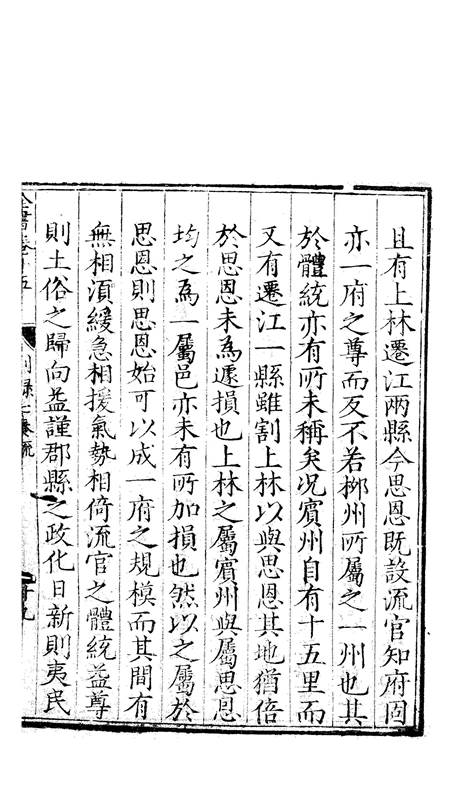 且有上林遷江兩縣今思恩既設流官知府固
亦一府之尊而反不若栁州所屬之一州也其
於體統亦有所未稱矣况賓州自有十五里而
又有遷江一縣雖割上林以與思恩其地猶倍
於思恩未為遽損也上林之屬賓州與屬思恩
均之為一屬邑亦未有所加損也然以之屬於
思恩則思恩始可以成一府之規模而其間有
無相湏緩急相援氣勢相倚流官之體統益尊
則土俗之歸向益謹郡縣之政化日新則夷民